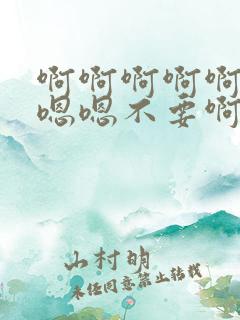 啊啊啊啊啊
嗯嗯不要啊
山村明
未经同意禁止转载